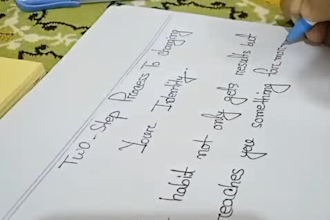 Two-Step Process To changing
Your Identity..
habit not only gets results but
teaches you something far more